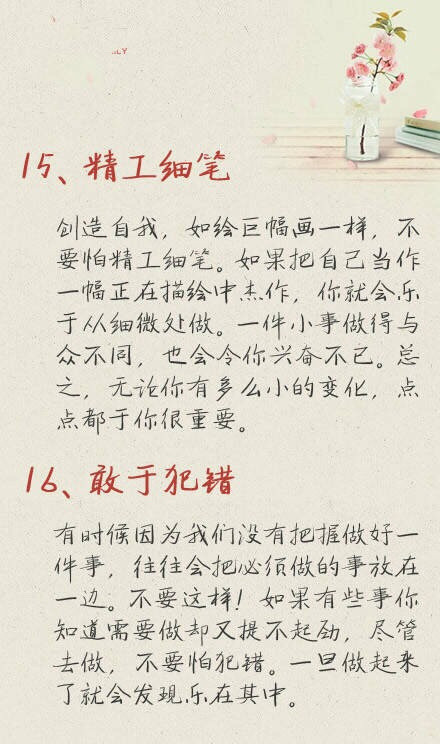 15、精工细笔
创造自我，如绘巨幅画一样，不
要怕精工细笔。如果把自己当作
一幅正在描绘中杰作，你就会乐
于从细微处做。一件小事做得与
众不同，也会令你兴奋不已。总
之，无论你有多么小的变化，点
点都于你很重要。
16、敢于犯错
有时候因为我们没有把握做好一
件事，往往会把必须做的事放在
一边。不要这样！如果有些事你
知道需要做却又提不起劲，尽管
去做，不要怕犯错。一旦做起来
了就会发现乐在其中。